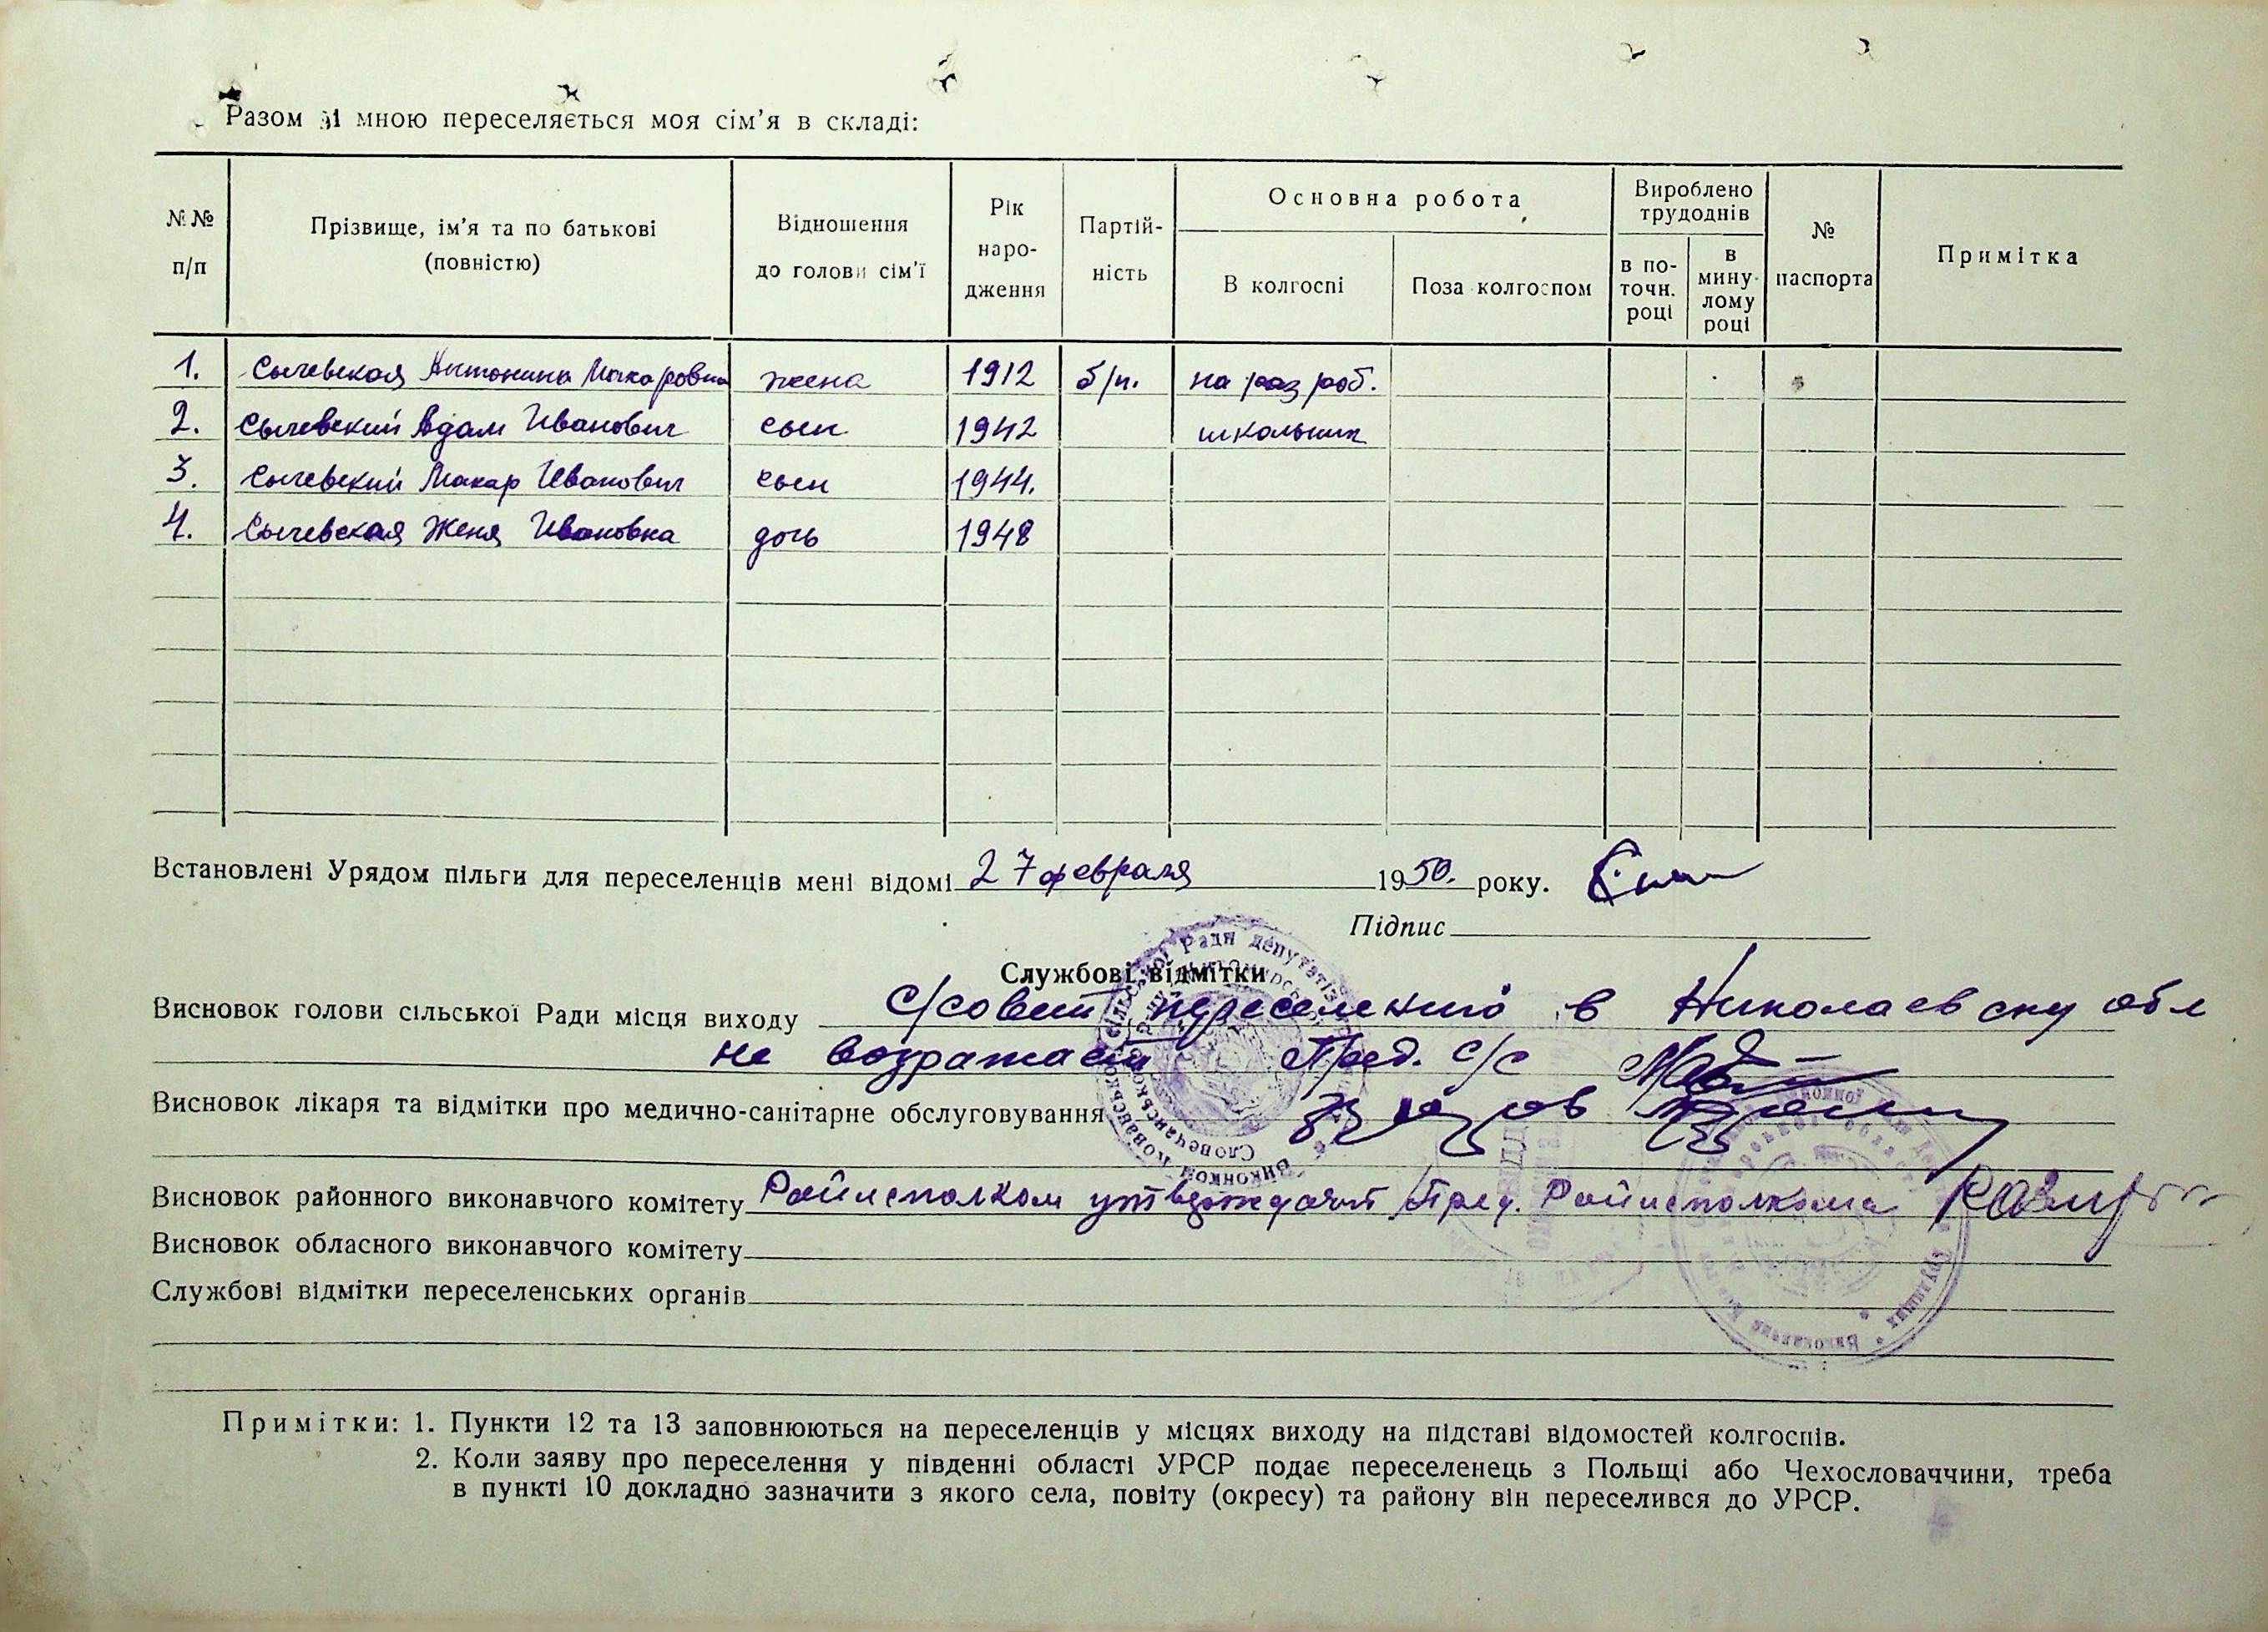 Разом зі мною переселяється моя сім'я в складі:
№№ п/п
Прізвище, ім'я та по батькові (повністю)
Відношення до голови сім'ї
Рік народження
Партійність
Основна робота
В колгоспі
Поза колгоспом
Вироблено трудоднів
в поточн. році
в минулому році
№ паспорта
Примітка
1. Сычевская Антонина Макаровна жена 1912 б/п. на раз роб.
2. Сычевский Адам Иванович сын 1942 школьник
3. Сычевский Макар Иванович сын 1944.
4. Сычевская Женя Ивановна дочь 1948
Встановлені Урядом пільги для переселенців мені відомі 27 февраля 1950. року.
Підпис
Службові відмітки
Висновок голови сільської Ради місця виходу с/совет в Николаевску обл
не возражает Пред. с/с
Висновок лікаря та відмітки про медично-санітарне обслуговування
Висновок районного виконавчого комітету Райисполком утверждает Пред. Райисполкома
Висновок обласного виконавчого комітету
Службові відмітки переселенських органів
Примітки: 1. Пункти 12 та 13 заповнюються на переселенців у місцях виходу на підставі відомостей колгоспів.
2. Коли заяву про переселення у південні області УРСР подає переселенець з Польщі або Чехословаччини, треба
в пункті 10 докладно зазначити з якого села, повіту (окресу) та району він переселився до УРСР.